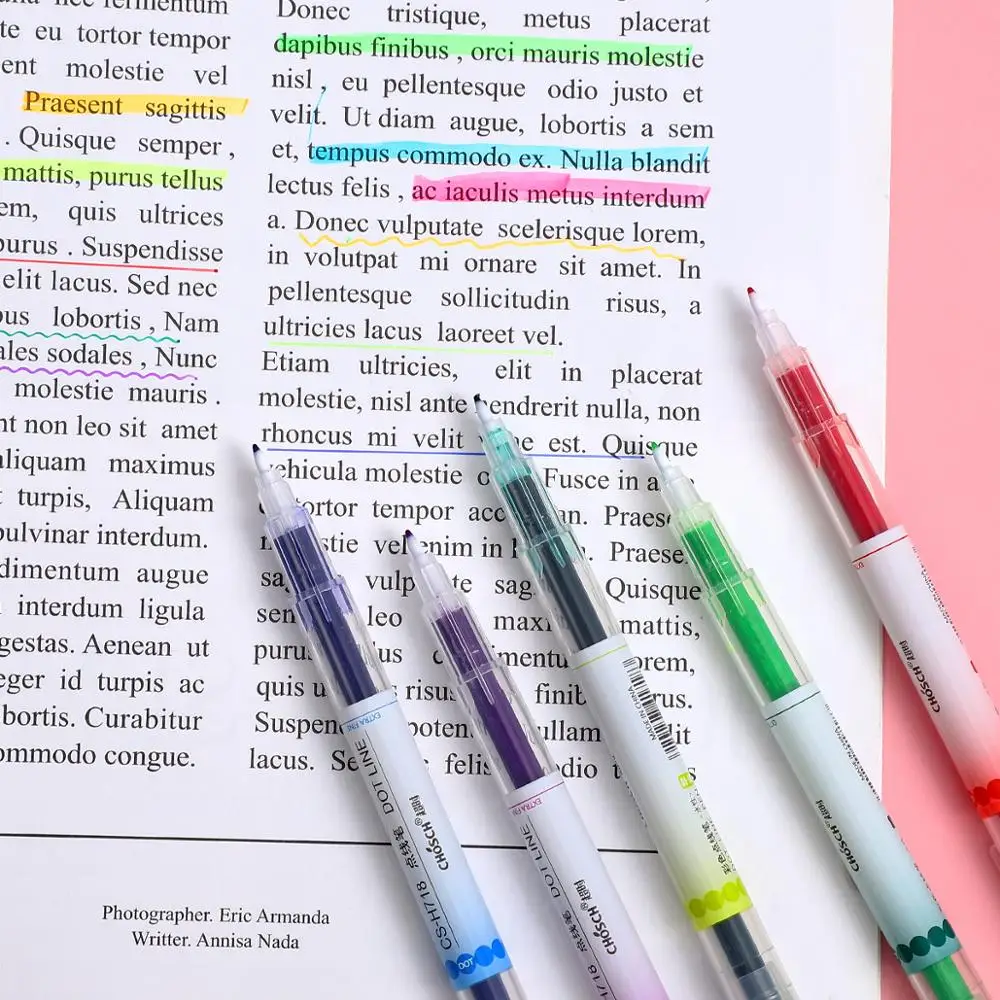 nec fermentum
te eu tortor tempor
ent molestie vel
Praesent sagittis
. Quisque semper ,
mattis, purus tellus
em, quis ultrices
purus . Suspendisse
elit lacus. Sed nec
us lobortis , Nam
ales sodales , Nunc
molestie mauris .
nt non leo sit amet
aliquam maximus
t turpis, Aliquam
pulvinar interdum.
dimentum augue
interdum ligula
gestas. Aenean ut
eger id turpis ac
bortis. Curabitur
ommodo congue.
Donec tristique, metus placerat
dapibus finibus , orci mauris molestie
nisl , eu pellentesque odio justo et
velit. Ut diam augue, lobortis a sem
et, tempus commodo ex. Nulla blandit
lectus felis , ac iaculis metus interdum
a. Donec vulputate scelerisque lorem,
in volutpat mi ornare sit amet. In
pellentesque sollicitudin risus, a
ultricies lacus laoreet vel.
Etiam ultricies, elit in placerat
molestie, nisl ante hendrerit nulla, non
rhoncus mi velit est. Quisque
vehicula molestie Fusce in
tortor tempor acc an. Praes
stie vel enim in Praese
sa vulp te sag Quisque
sen leo max mattis,
puru us mentu orem,
quis u risus finib rus.
Suspen poten ullam lit
lacus. Se felis odio
Photographer. Eric Armanda
Writter. Annisa Nada
EXTRA FINE
DOT LINE
CHOSCH® 超时
CS-H718 点线笔
DOT
EXTRA FINE
DOT LINE
CHOSCH® 超时
H718 点线笔
MADE IN CHINA
CHOSCH® 超时
CHOSCH® 超时